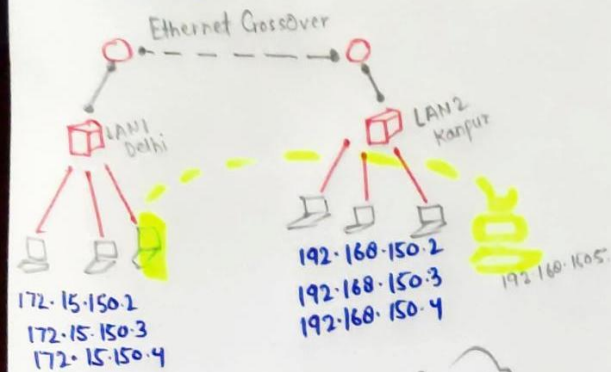 Ethernet CrossOver
LAN1
Delhi
LAN2
Kanpur
172.15.150.2
172.15.150.3
172.15.150.4
192.168.150.2
192.168.150.3
192.168.150.4
192.168.1505.